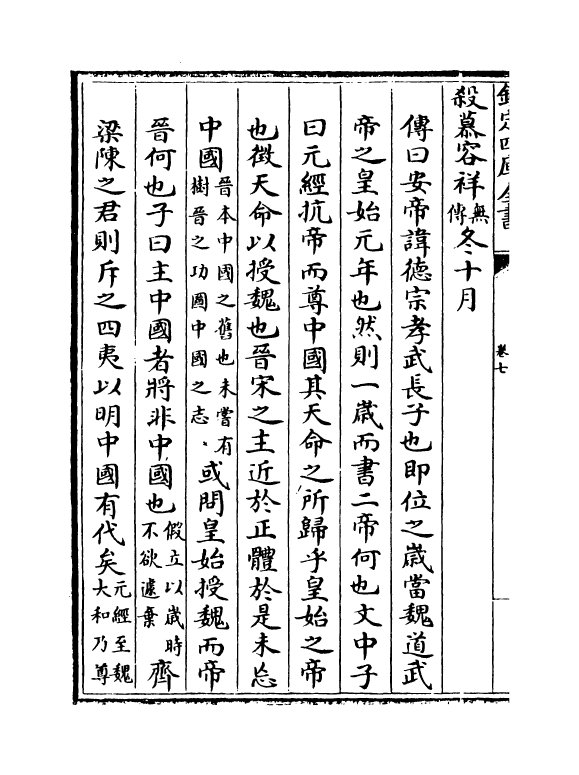 欽定四庫全書
卷七
殺慕容祥無傳冬十月
傳曰安帝諱德宗孝武長子也即位之歲當魏道武
帝之皇始元年也然則一歲而書二帝何也文中子
曰元經抗帝而尊中國其天命之所歸乎皇始之帝
也徵天命以授魏也晉宋之主近於正體於是未忘
中國晉本中國之舊也未嘗有樹晉之功圖中國之志或問皇始授魏而帝
晉何也子曰主中國者將非中國也假立以歲時不欲遽棄齊
梁陳之君則斥之四夷以明中國有代矣元經至魏大和乃尊